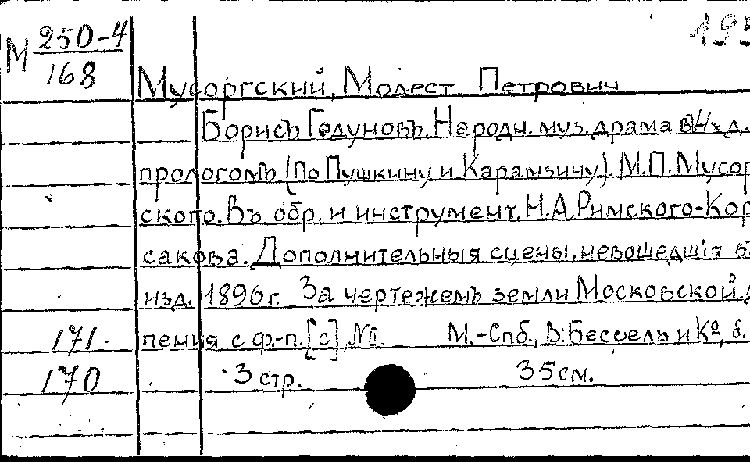 М 250-4
168
195
Мусоргский, Модест Петрович
Борисъ Годуновъ. Народн. муз. драма въ 4-х д.
прологомъ (по Пушкину и Карамзину). М.П. Мусор
ского. Въ обр. и инструмент. Н.А. Римского-Кор
сакова. Дополнительныя сцены, невошедшія в
изд. 1896 г. За чертежемъ земли Московской.
171. пения с ф.-п. [с] М.-Спб., В. Бессель и Ко,
170 3 стр. 35 см.